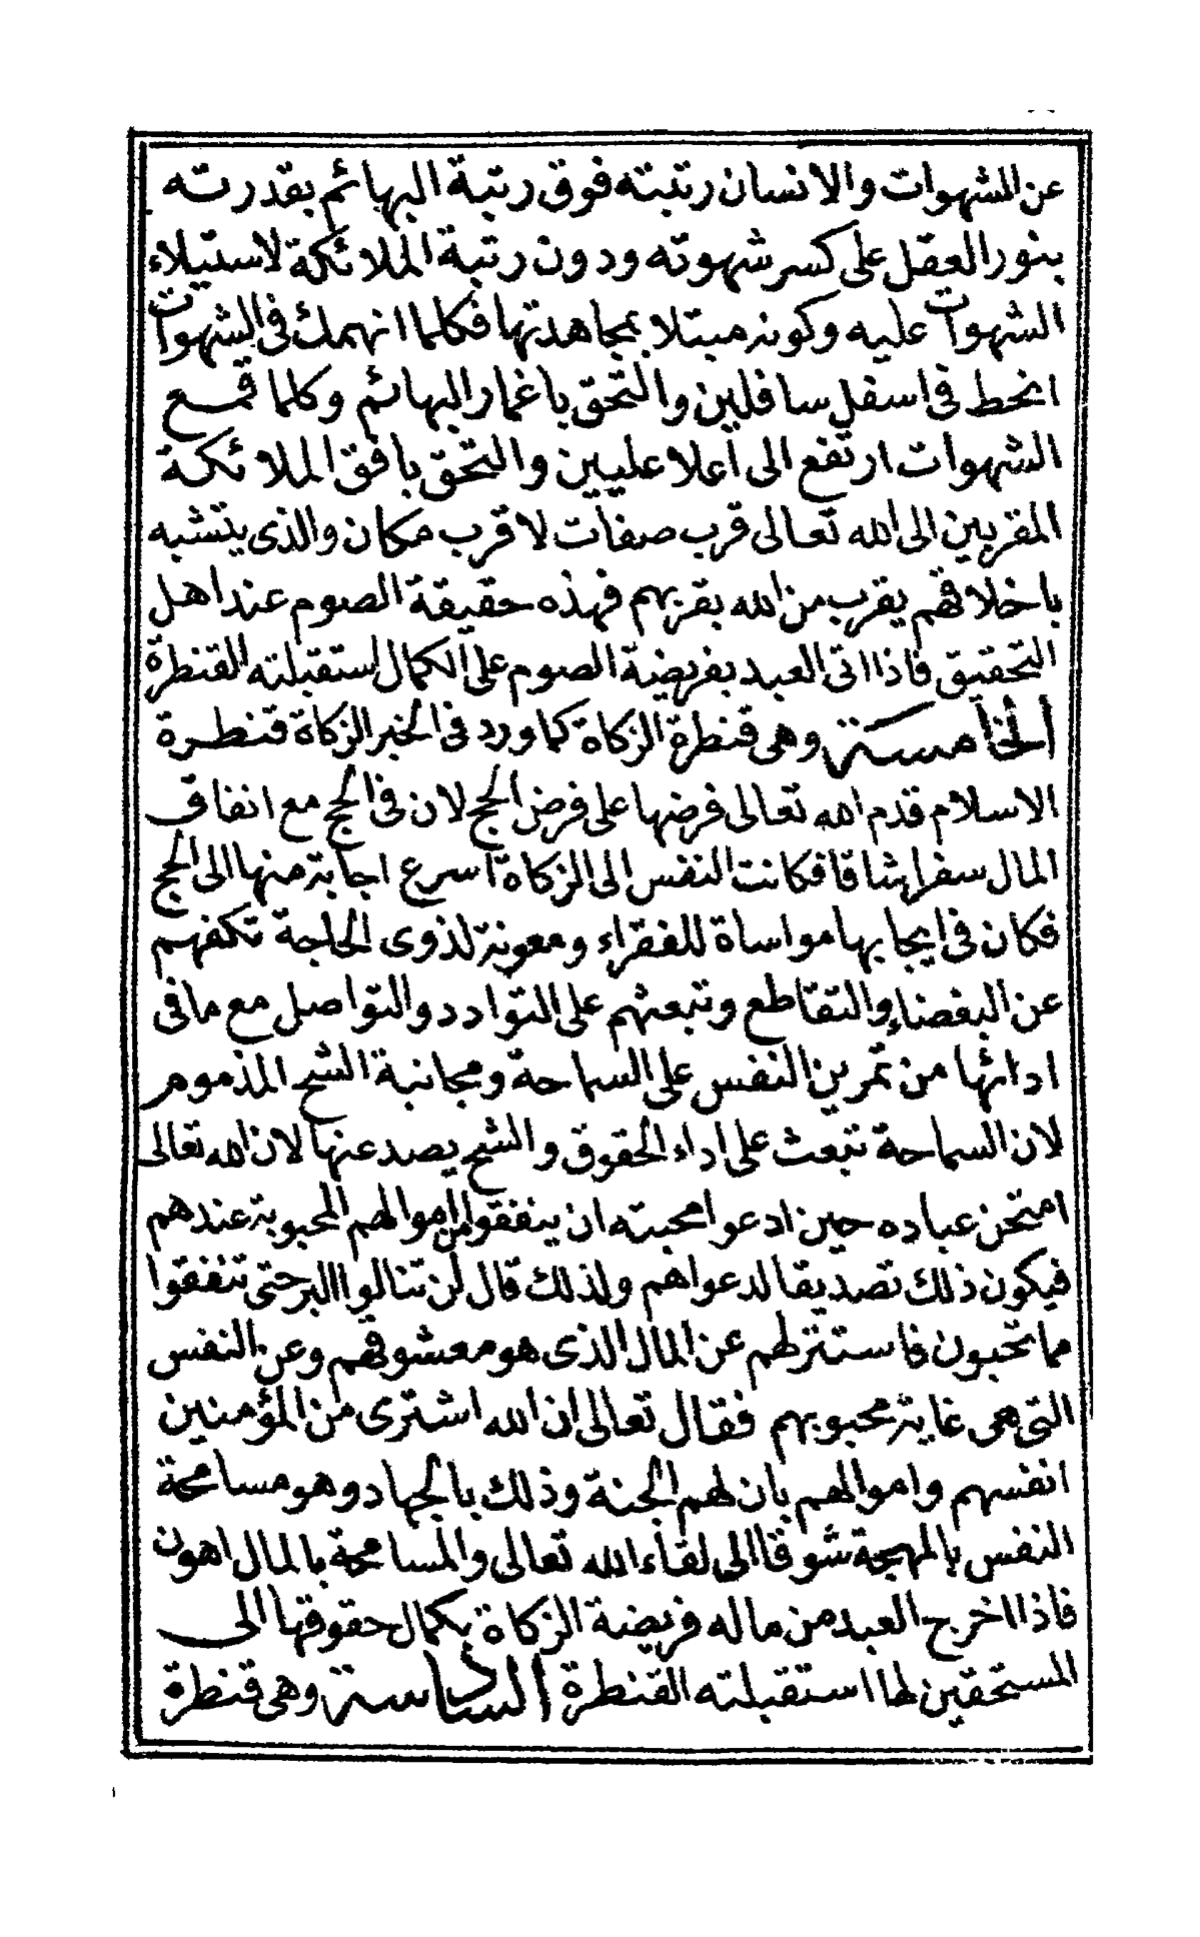 عن الشهوات والانسان رتبته فوق رتبة البهائم بقدرته
بنور العقل على كسر شهوته ودون رتبة الملائكة لاستيلاء
الشهوات عليه وكونه مبتلا بمجاهدتها فكلما انهمك فى الشهوات
انحط فى اسفل سافلين والتحق باغمار البهائم وكلما قمع
الشهوات ارتفع الى اعلا عليين والتحق بافق الملائكة
المقربين الى الله تعالى قرب صفات لا قرب مكان والذى يتشبه
باخلاقهم يقرب من الله بقربهم فهذه حقيقة الصوم عند اهل
التحقيق فاذا اتى العبد بفريضة الصوم على الكمال استقبلته القنطرة
الخامسة وهى قنطرة الزكاة كما ورد فى الخبر الزكاة قنطرة
الاسلام قدم الله تعالى فرضها على فرض الحج لان فى الحج مع انفاق
المال سفرا شاقا فكانت النفس الى الزكاة اسرع اجابة منها الى الحج
فكان فى ايجابها مواساة للفقراء ومعونة لذوى الحاجة تكفهم
عن البغضاء والتقاطع وتبعثهم على التوادد والتواصل مع ما فى
ادائها من تمرين النفس على السماحة ومجانبة الشح المذموم
لان السماحة تبعث على اداء الحقوق والشح يصد عنها لان الله تعالى
امتحن عباده حين ادعوا محبته ان ينفقوا من اموالهم المحبوبة عندهم
فيكون ذلك تصديقا لدعواهم ولذلك قال لن تنالوا البر حتى تنفقوا
مما تحبون فاستنزلهم عن المال الذى هو معشوقهم وعن النفس
التى هى غاية محبوبهم فقال تعالى ان الله اشترى من المؤمنين
انفسهم واموالهم بان لهم الجنة وذلك بالجهاد وهو مسامحة
النفس بالمهجة شوقا الى لقاء الله تعالى والمسامحة بالمال اهون
فاذا اخرج العبد من ماله فريضة الزكاة بكمال حقوقها الى
المستحقين لها استقبلته القنطرة السادسة وهى قنطرة